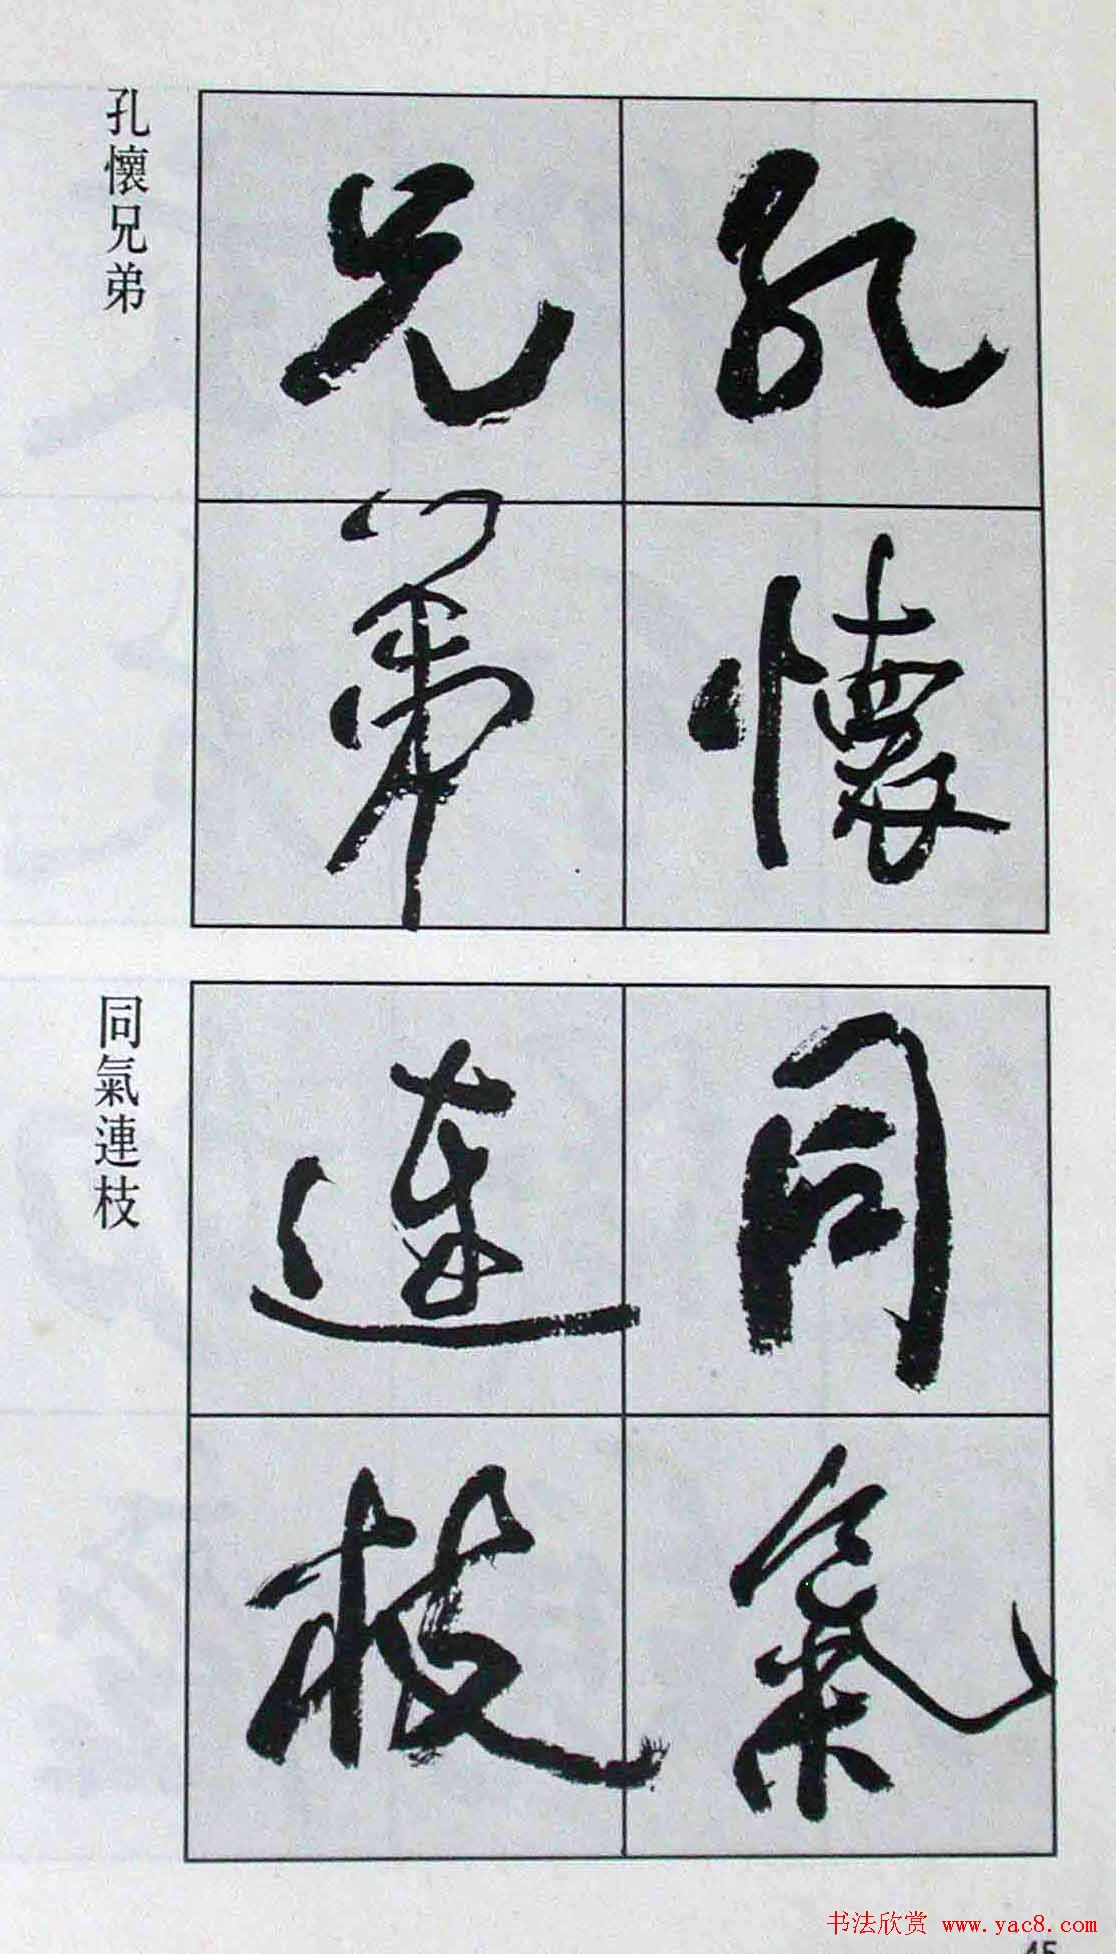 孔懷
兄弟
孔懷兄弟
同氣
連枝
同氣連枝
书法欣赏 www.yac8.com
45